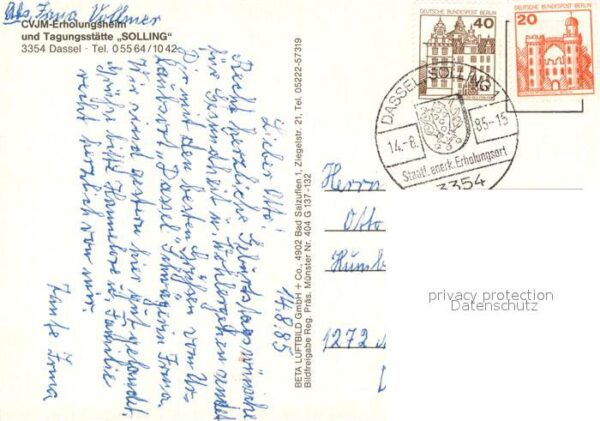 Abs. Irma Vollmer
CVJM-Erholungsheim
und Tagungsstätte „SOLLING"
3354 Dassel · Tel. 0 55 64 / 10 42
14.8.85
Lieber Otto!
Recht herzliche Geburtstagswünsche
für Gesundheit u. Wohlergehen sendet
Dir mit den besten Grüßen vom Ur-
laubsort „Dassel"
Irma
Wir sind gestern hier gut gelandet,
Grüße bitte Hannelore u. Familie
recht herzlich von mir.
Tante Irma
BETA LUFTBILD GmbH + Co., 4902 Bad Salzuflen 1, Ziegelstr. 21, Tel. 05222-57319
Bildfreigabe Reg. Präs. Münster Nr. 404 G 137-132
40
DEUTSCHE BUNDESPOST BERLIN
20
DEUTSCHE BUNDESPOST BERLIN
DASSEL, SOLLING 1
14.-8. 85-15
Staatl. anerk. Erholungsort
3354
Herrn
Otto
1272
privacy protection
Datenschutz